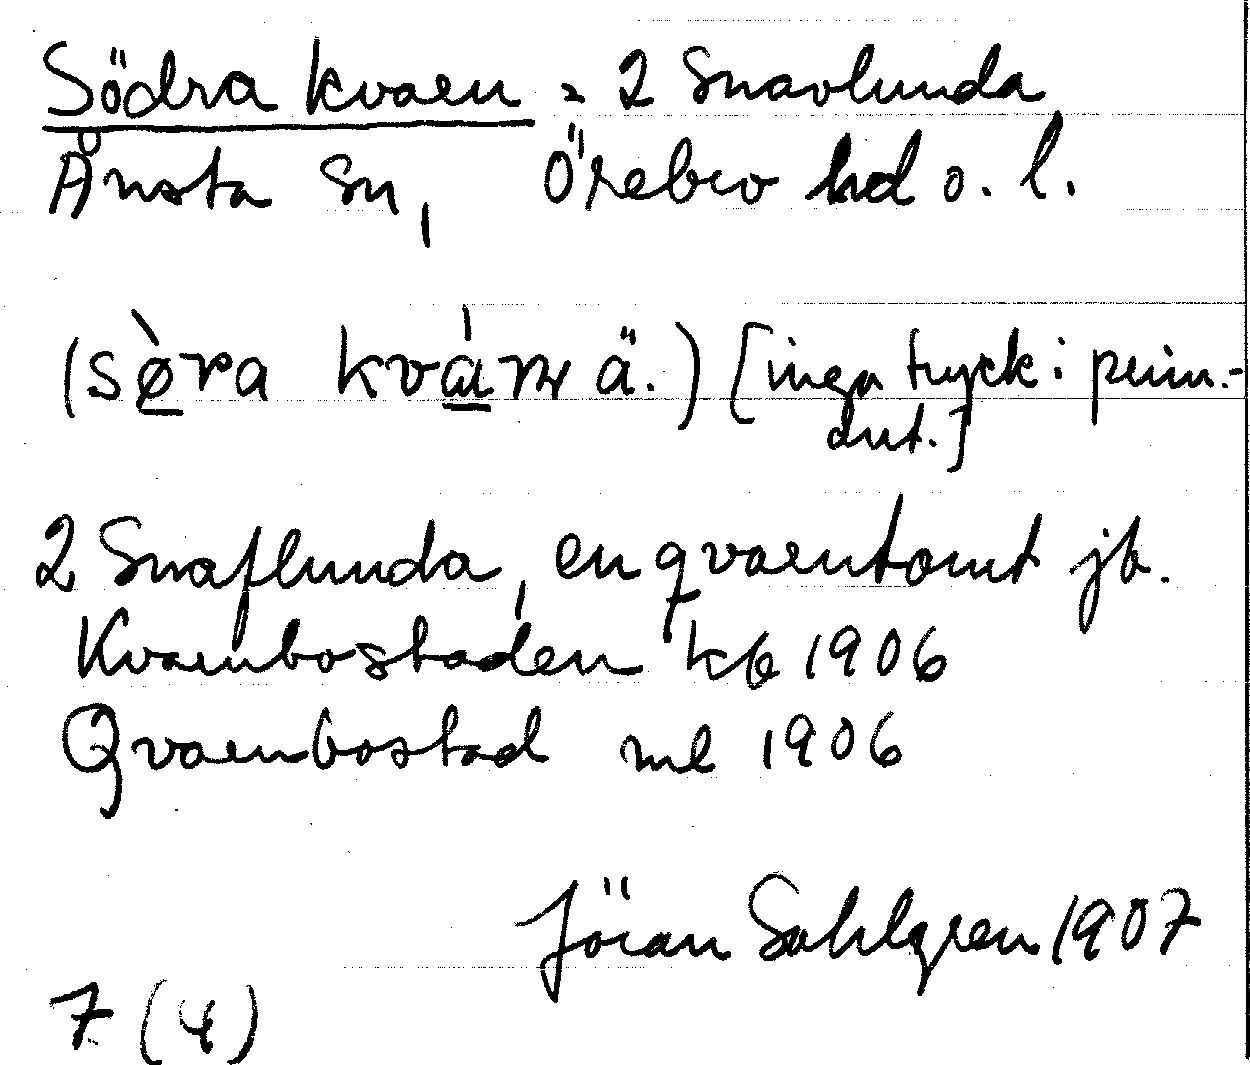 Södra kvaen = 2 Snavlunda
Ånsta sn, Örebro hd o. l.
(sø̀ra kván ä.) [inga tryck i prim.-
ant.]
2 Snaflunda, en qvaentomt jb.
Kvaenbostaden kb 1906
Qvaenbostad ml 1906
Jöran Sahlgren 1907
7 (4)